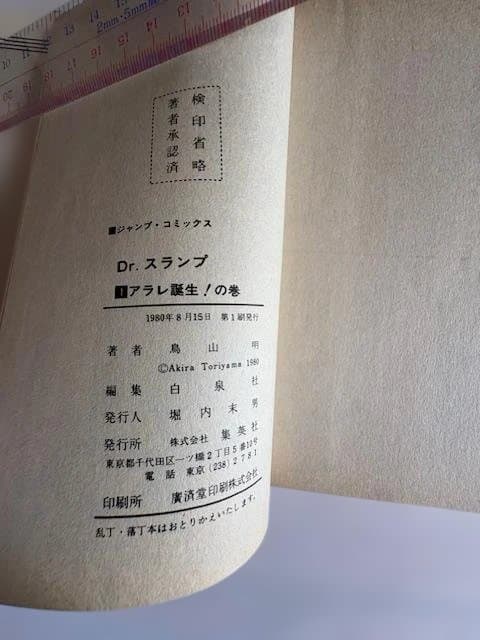 2mm・5mm
検印省略
著者承認済
■ジャンプ・コミックス
Dr.スランプ
1アラレ誕生!の巻
1980年8月15日 第1刷発行
著者 鳥山明
©Akira Toriyama 1980
編集 白泉社
発行人 堀内末男
発行所 株式会社 集英社
東京都千代田区一ツ橋2丁目5番10号
電話 東京(238)2781
印刷所 廣済堂印刷株式会社
乱丁・落丁本はおとりかえいたします。